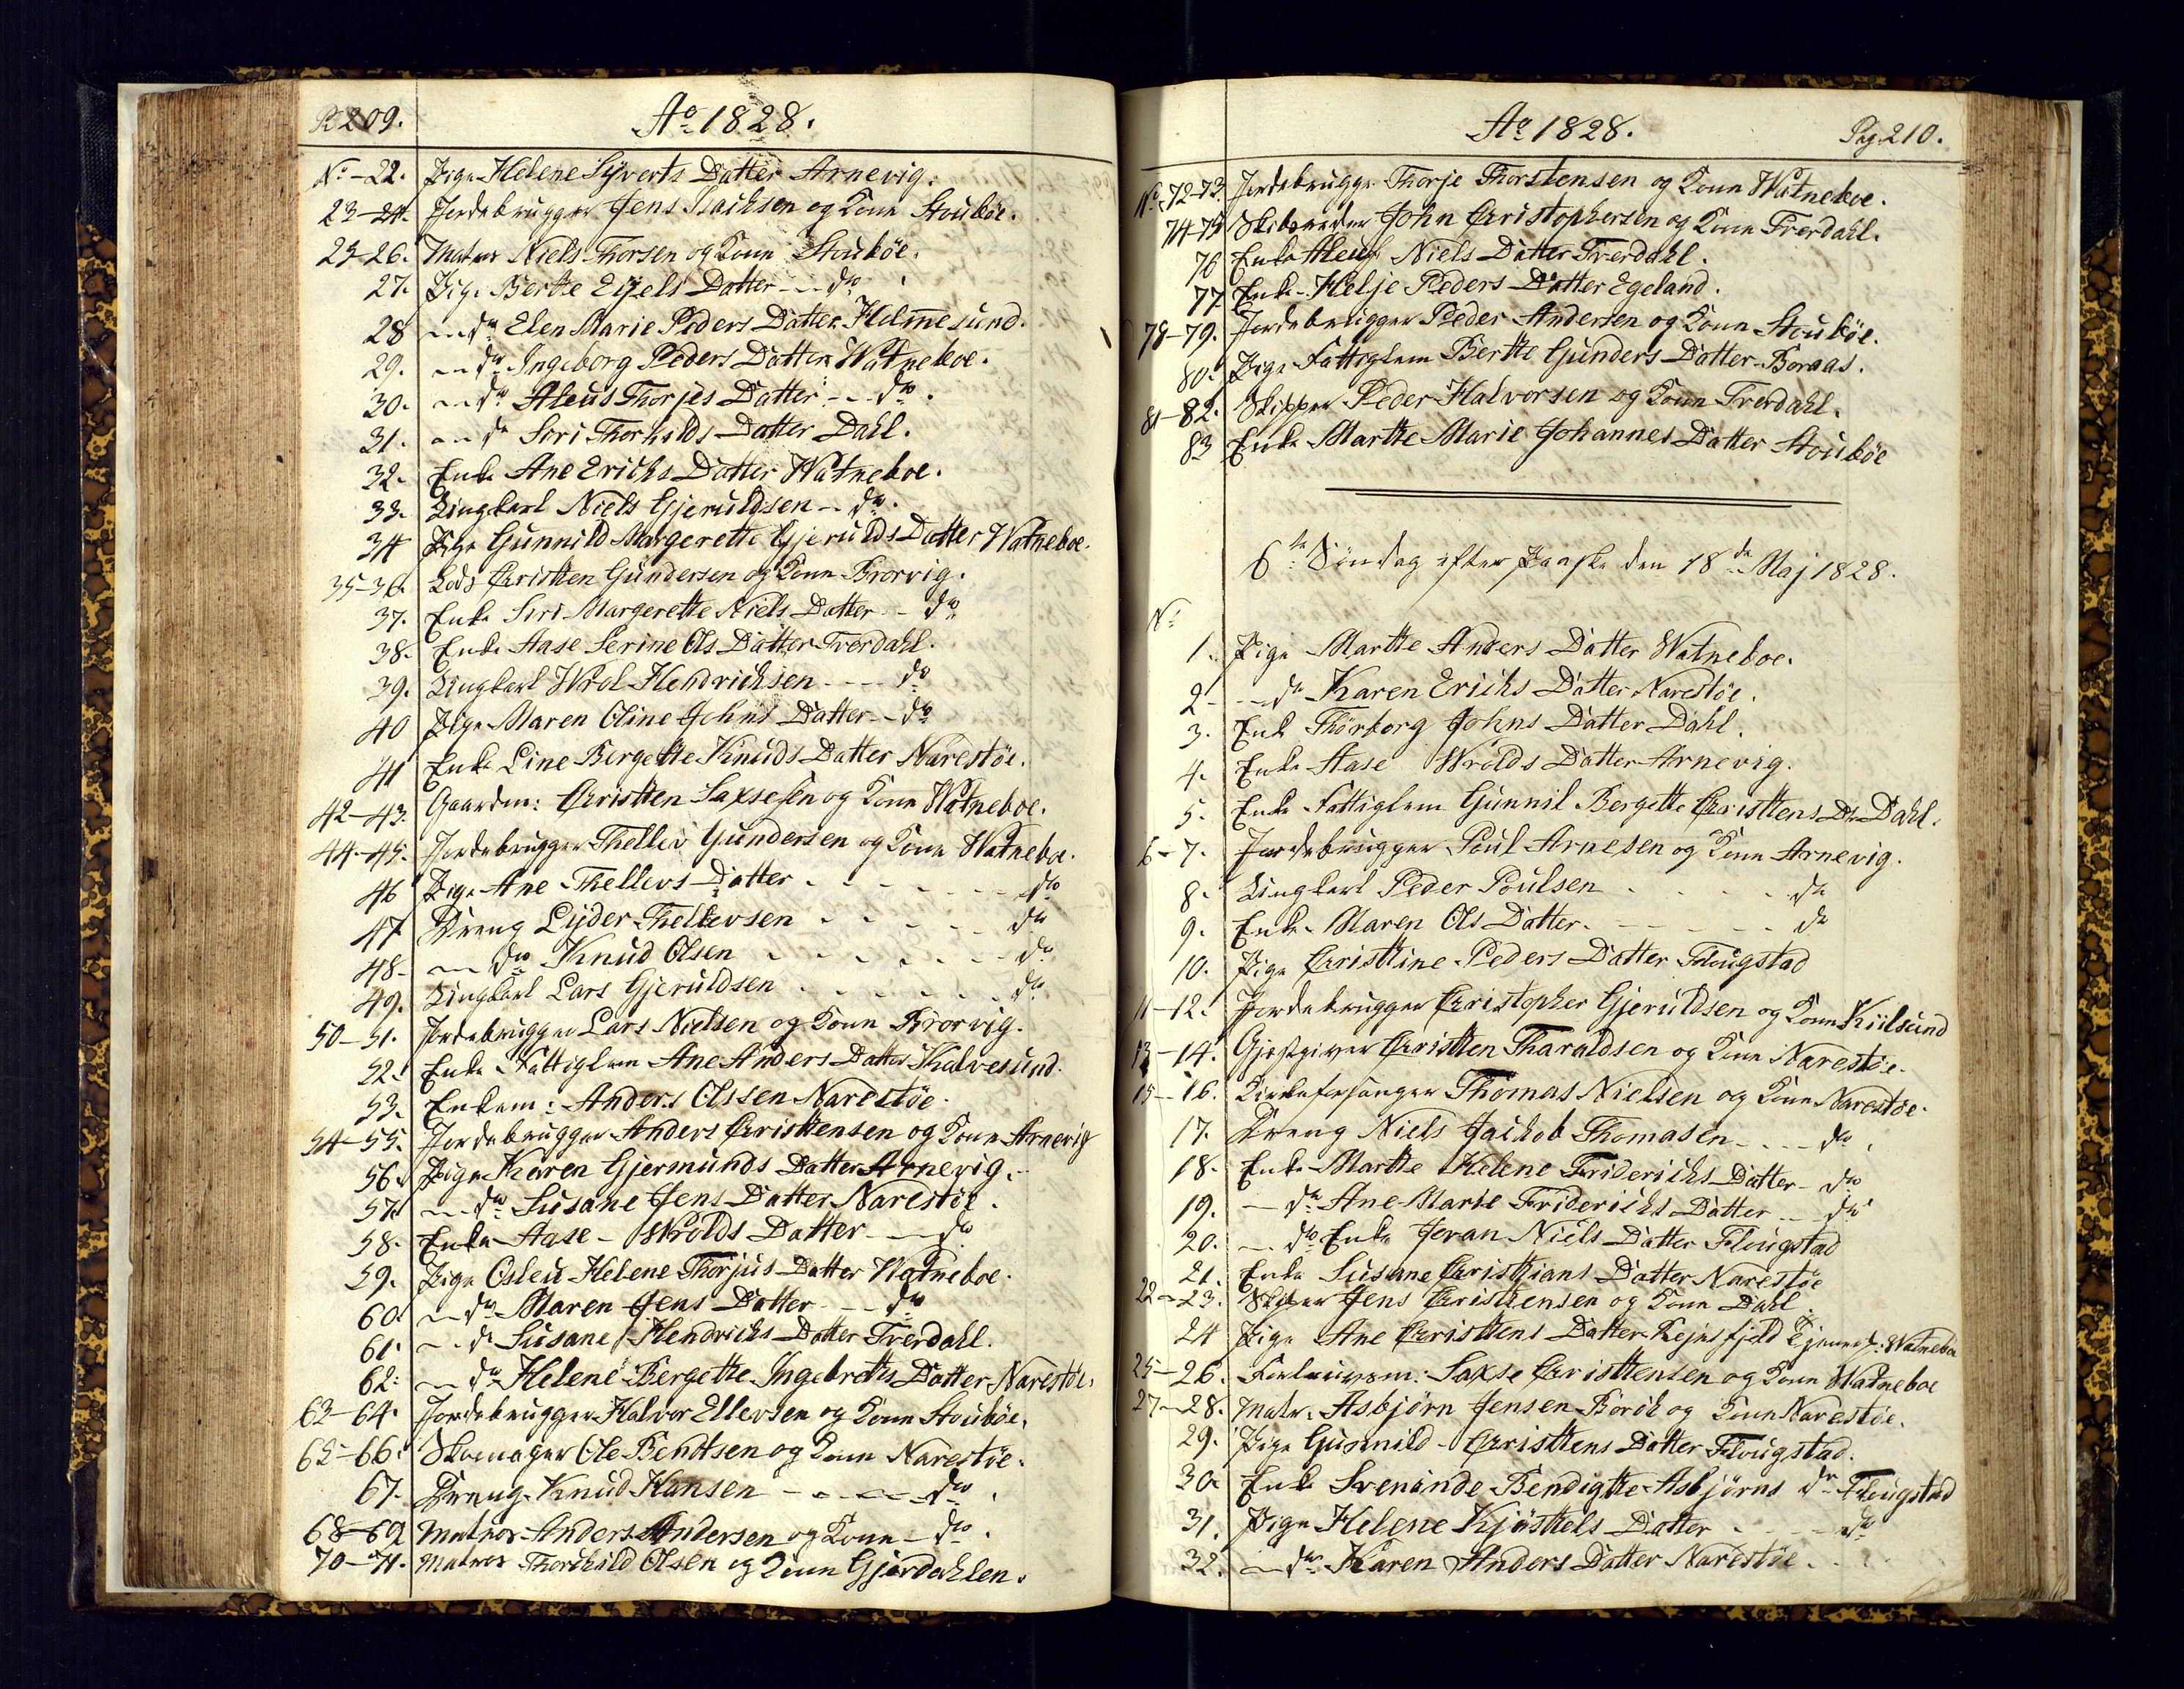 P. 209.
Ao 1828.
No - 22. Pige Helene Syverts Datter Arnevig.
23-24. Jordebrugger Jens Isachsen og Kone Stoubøe.
25-26. Matros Niels Thorsen og Kone Stoubøe.
27. Pige Berthe Eyels Datter - do
28 - do Elen Marie Peders Datter Helmesund.
29. - do Ingeborg Peders Datter Watneboe.
30. - do Aleus Thorjes Datter - do.
31. - do Siri Thorkilds Datter Dahl.
32. Enke Ane Erichs Datter Watneboe.
33. Ungkarl Niels Gjeruldsen - do.
34 Pige Gunnild Margerette Gjerulds Datter Watneboe.
35-36. Lods Christen Gundersen og Kone Brorvig.
37. Enke Siri Margerette Niels Datter - do
38. Enke Aase Serine Ols Datter Tverdahl.
39. Ungkarl Wrol Hendrichsen - - - do
40 Pige Maren Oline Johns Datter - do
41 Enke Line Bergethe Knuds Datter Narestøe.
42-43. Gaardm: Christen Saxsesen og Kone Watneboe.
44-45. Jordebrugger Thellev Gundersen og Kone Watneboe.
46 Pige Ane Thellevs Datter - - - do
47 Dreng Lyder Thellevsen - - - do
48- - do Knud Olsen - - - do
49. Ungkarl Lars Gjeruldsen - - - do
50-51. Jordebrugger Lars Nielsen og Kone Brorvig.
52. Enke Fattiglem Ane Anders Datter Kalvesund.
53. Enkem: Anders Olssen Narestøe.
54-55. Jordebrugger Anders Christensen og Kone Arnevig
56. Pige Karen Gjermunds Datter Arnevig.
57. - do Susane Jens Datter Narestøe.
58. Enke Aase Wrolds Datter - do
59. Pige Osleu Helene Thorjus Datter Watneboe.
60 - do Maren Jens Datter - - do
61. - do Susane Hendrichs Datter Tverdahl.
62. - do Helene Bergethe Ingebreths Datter Narestøe.
63-64. Jordebrugger Halvor Ellevsen og Kone Stoubøe.
65-66. Skomager Ole Bendtsen og Kone Narestøe.
67. Dreng Knud Hansen - - - do.
68-69 Matros Anders Andersen og Kone - do.
70-71. Matros Thorkild Olsen og Kone Gjerdahlen.
Ao 1828.
Pag. 210.
No 72-73. Jordebrugger Thorje Thorstensen og Kone Watneboe.
74-75 Skibsreder John Christophersen og Kone Tverdahl.
76 Enke Aleus Niels Datter Tverdahl.
77 Enke Helje Peders Datter Egeland.
78-79. Jordebrugger Peder Andersen og Kone Stoubøe.
80. Pige Fattiglem Berthe Gunders Datter Boraas.
81-82. Skipper Peder Halvorsen og Kone Tverdahl.
83 Enke Marthe Marie Johannes Datter Stoubøe
6te Søndag efter Paaske den 18de Maj 1828.
No
1. Pige Marthe Anders Datter Watneboe.
2- - do Karen Erichs Datter Narestøe.
3. Enke Thorborg Johns Datter Dahl.
4. Enke Aase Wrolds Datter Arnevig.
5. Enke Fattiglem Gunnil Bergette Christens Dr Dahl.
6-7. Jordebrugger Poul Arnesen og Kone Arnevig.
8. Ungkarl Peder Poulsen - - - do
9. Enke Maren Ols Datter - - - do
10. Pige Christine Peders Datter Flougstad
11-12. Jordebrugger Christopher Gjeruldsen og Kone Kiilsund
13-14. Gjestgiver Christen Tharaldsen og Kone Narestøe.
15-16. Kirkesanger Thomas Nielsen og Kone Narestøe.
17. Dreng Niels Jachob Thomasen - - do.
18. Enke Marthe Helene Friderichs Datter - do
19. - do Ane Marie Friderichs Datter - do
20. - do Enke Joran Niels Datter Flougstad
21. Enke Susane Christians Datter Narestøe
22-23. Skipper Jens Christensen og Kone Dahl.
24 Pige Ane Christens Datter Rejersfjeld tjenende: Watneboe
25-26. Forligelsesm: Saxse Christensen og Kone Watneboe
27-28. Matr. Asbjørn Jensen Borøk og Kone Narestøe.
29. Pige Gunnild Christens Datter Flougstad.
30 Enke Svenunde Bendigtte Asbjørns dr Flougstad
31. Pige Helene Kjøstels Datter - - - do
32. - do Karen Anders Datter Narestøe.